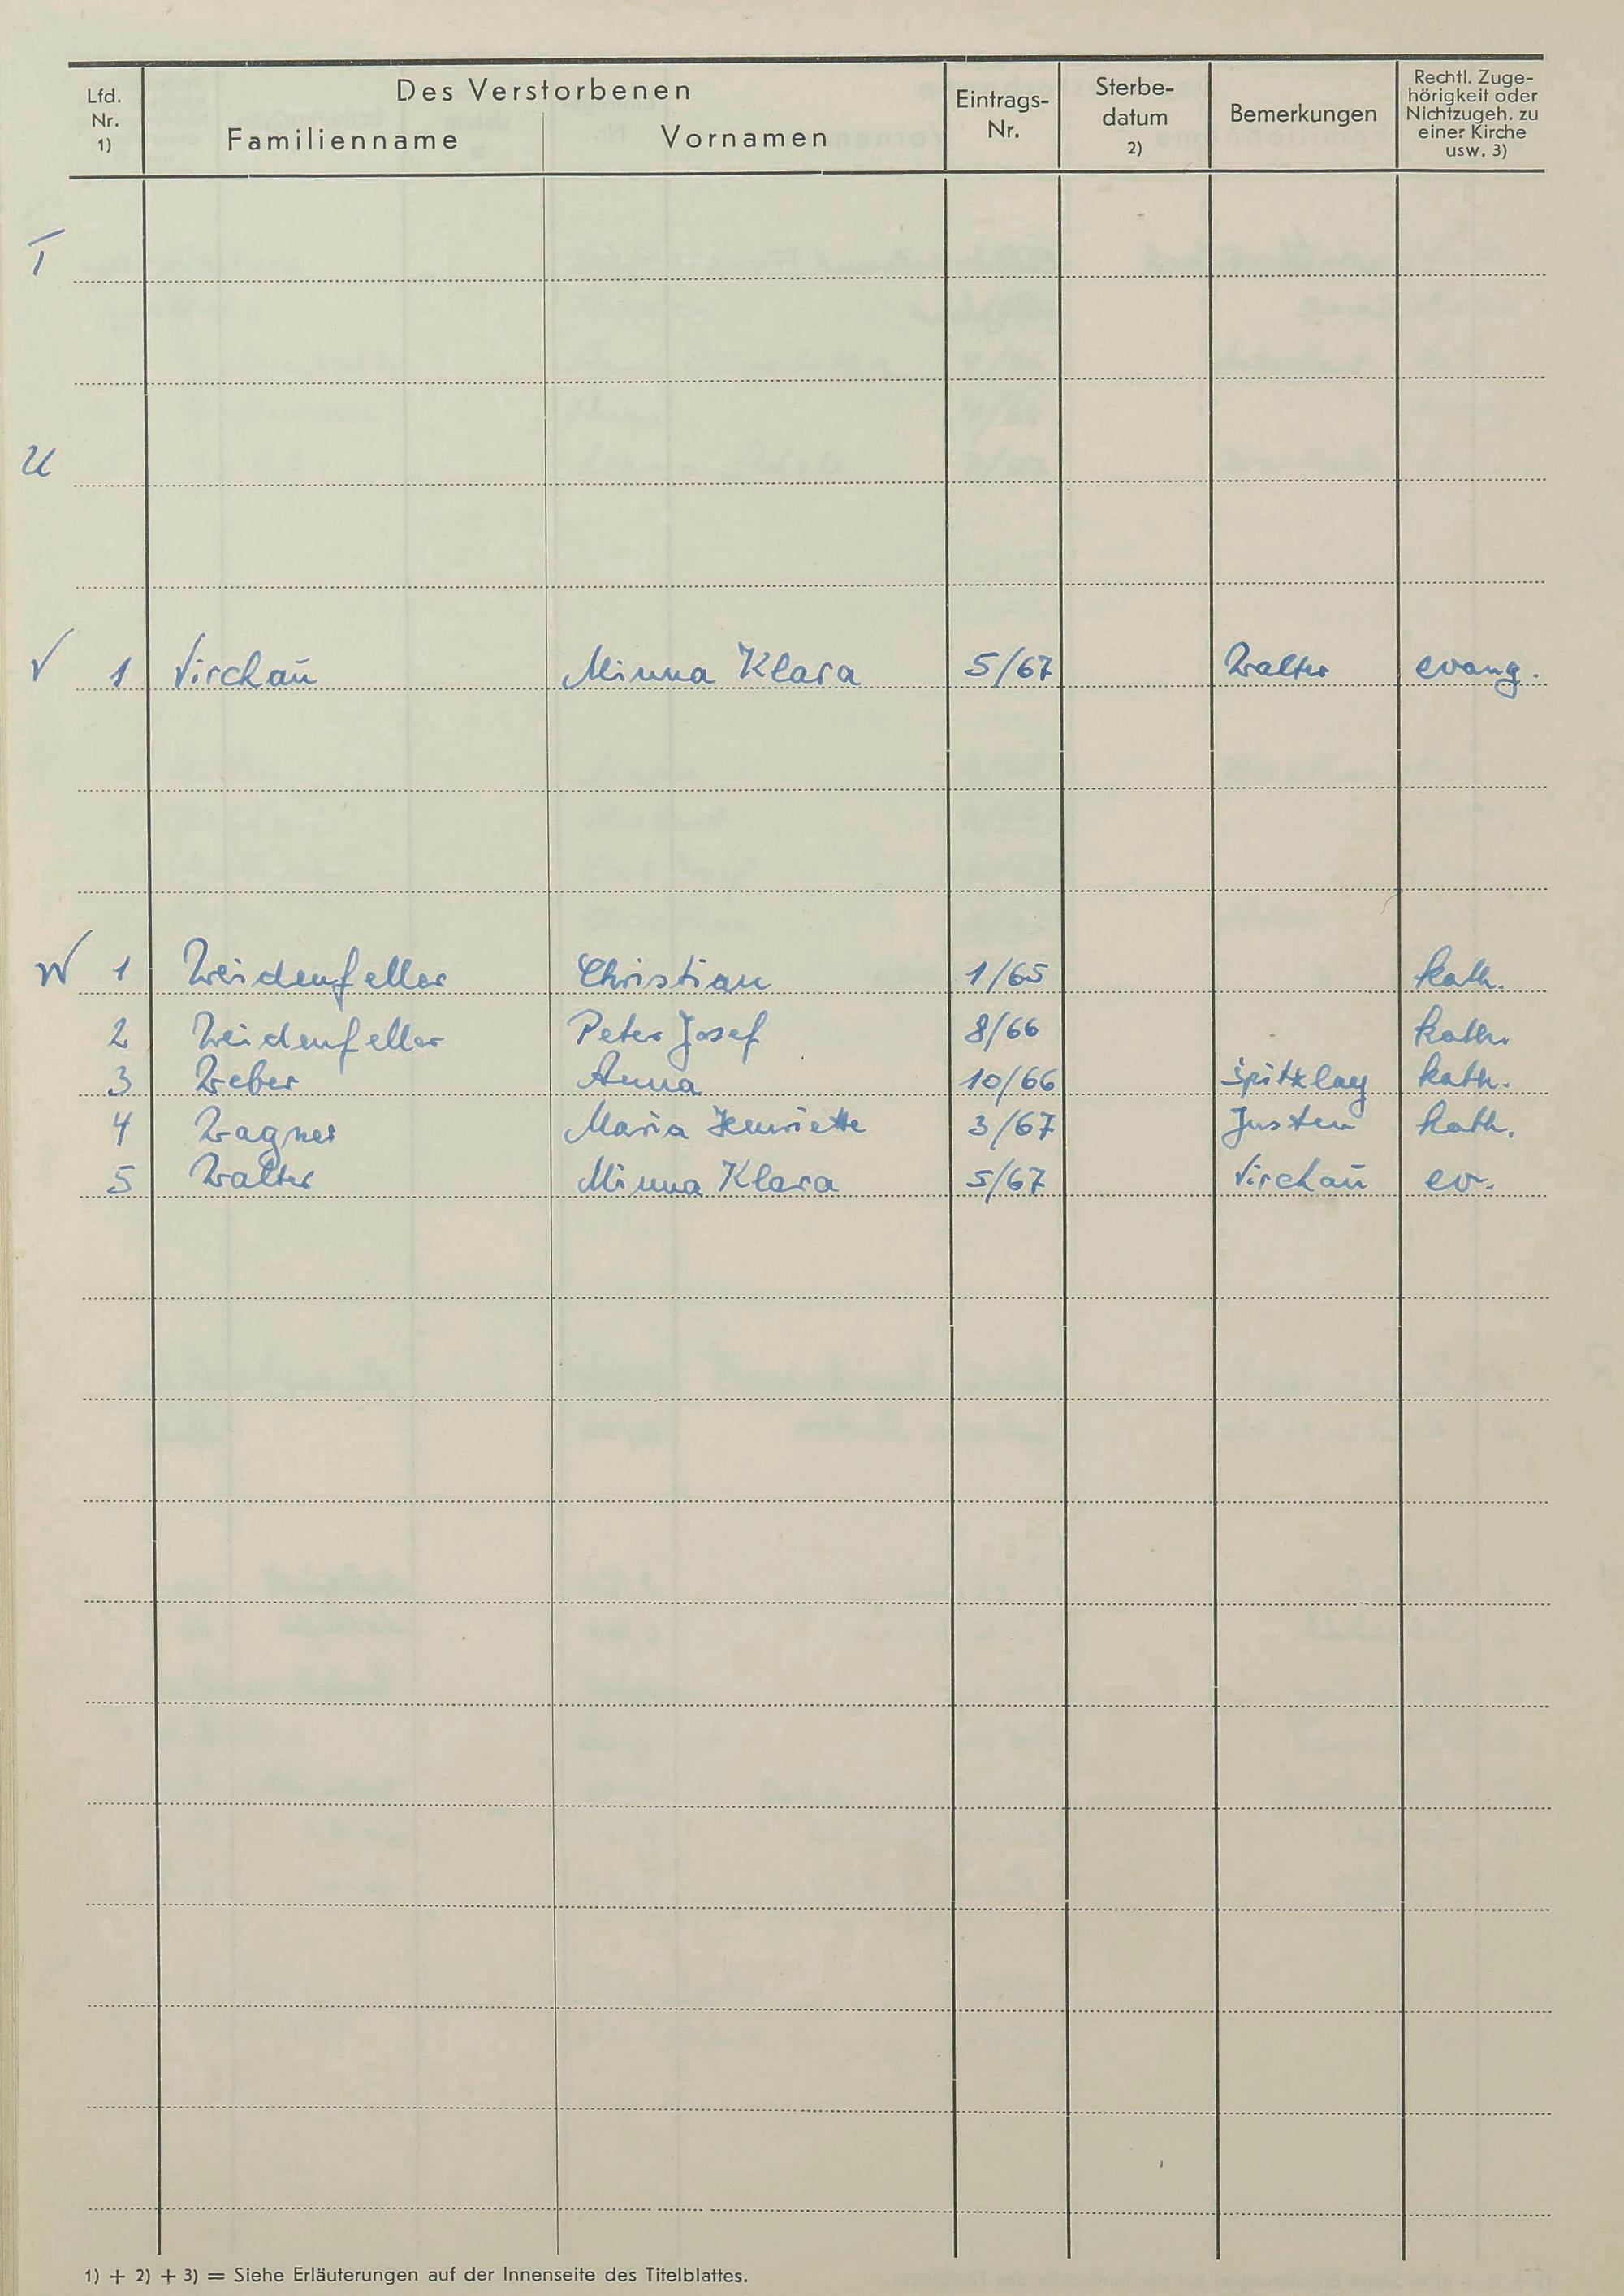 Lfd. Nr. 1)
Des Verstorbenen
Familienname
Vornamen
Eintrags-Nr.
Sterbe-datum 2)
Bemerkungen
Rechtl. Zuge-hörigkeit oder Nichtzugeh. zu einer Kirche usw. 3)
T
U
V 1 Virchau Minna Klara 5/67 Walter evang.
W 1 Weidenfeller Christian 1/65 kath.
2 Weidenfeller Peter Josef 8/66 kath.
3 Weber Anna 10/66 Spitzlay kath.
4 Wagner Maria Henriette 3/67 Justen kath.
5 Walter Minna Klara 5/67 Virchau ev.
1) + 2) + 3) = Siehe Erläuterungen auf der Innenseite des Titelblattes.